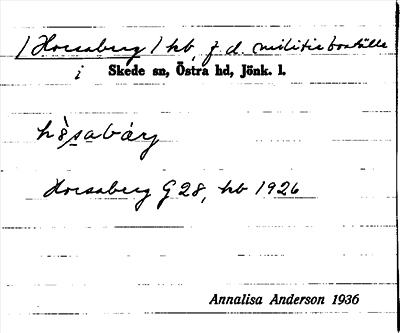 /Horsaberg/ hb, f.d. militieboställe
i Skede sn, Östra hd, Jönk. l.
Horsaberg G 28, hb 1926
Annalisa Anderson 1936